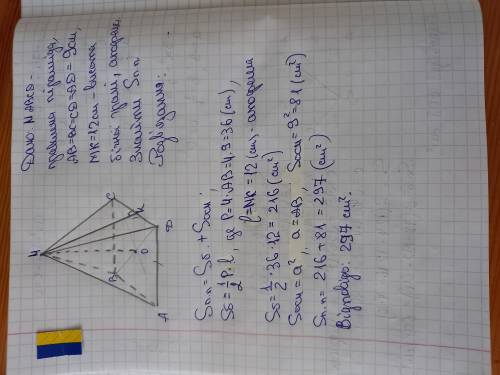 Дано: MABCD -
правильна піраміда,
AB=BC=CD=AD=9см,
MK=12см - висота
бічної грані, апофема.
Знайти Sп.п
Розв'язання:
M
C
K
D
O
B
A
Sп.п = Sб + Sосн;
Sб = 1/2 P·l, де P=4·AB=4·9=36(см),
l=MK=12(см) - апофема
Sб = 1/2 · 36 · 12 = 216 (см²)
Sосн = a², a=AB, Sосн = 9² = 81 (см²)
Sп.п = 216 + 81 = 297 (см²)
Відповідь: 297 см².